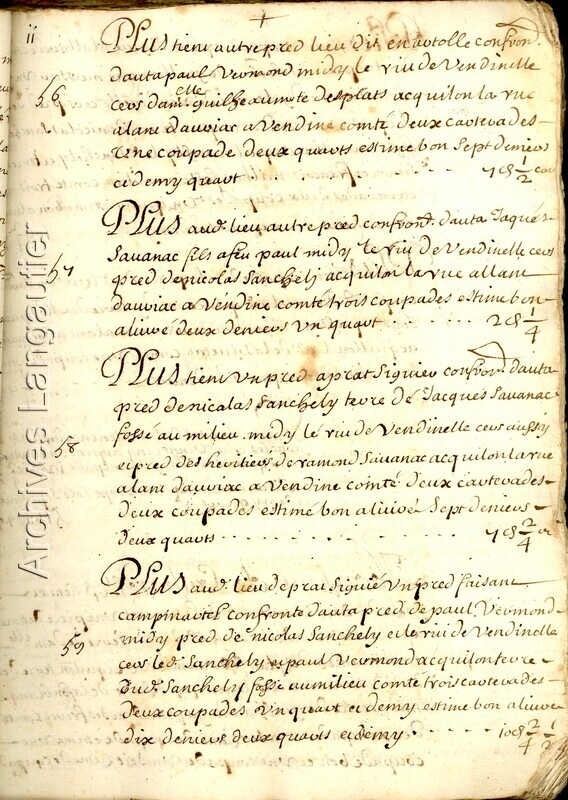 ii
PLus tient autre pred lieu dit en autolle confron.
dauta paul Vermond midy le riu de Vendinelle
56 cers dam.elle guilheaumete desplats acquilon la rue
alant dauriac a Vendine comté deux cartevades
Une coupade deux quarts estime bon sept deniers
et demy quart 7 d 1/2
PLus aud. lieu autre pred confrond. dauta Jaques
Sauanac fils a feu paul midy le riu de Vendinelle cers
57 pred de nicolas Sanchely acquilon la rue allant
dauriac a Vendine comté trois coupades estime bon
aliuré deux deniers Vn quart 2 d 1/4
PLus tient Vn pred a prat siguier confron. dauta
pred de nicalas Sanchely terre de Jacques Sauanac
fossé au milieu midy le riu de Vendinelle cers aussy
58 et pred des heritiers de ramond Sauanac acquilon la rue
alant dauriac a Vendine comté deux cartevades
deux coupades estimé bon a liuré sept deniers
deux quarts 7 d 2/4
PLus aud. lieu de prat siguié Vn pred faisant
campinautel confronte dauta pred de paul Vermond
59 midy pred de nicolas Sanchely et le riu de Vendinelle
cers led. Sanchely et paul Vermond acquilon terre
dud. Sanchely fosse au milieu comté trois cartevades
deux coupades Vn quart et demy estime bon aliure
dix deniers deux quarts et demy 10 d 2/4 1/2
Archives Langautier